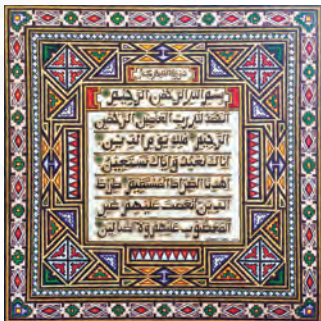 سورة
بسم الله الرحمن الرحيم
الحمد لله رب العالمين الرحمن
الرحيم ملك يوم الدين
إياك نعبد وإياك نستعين
اهدنا الصراط المستقيم صراط
الذين أنعمت عليهم غير
المغضوب عليهم ولا الضالين